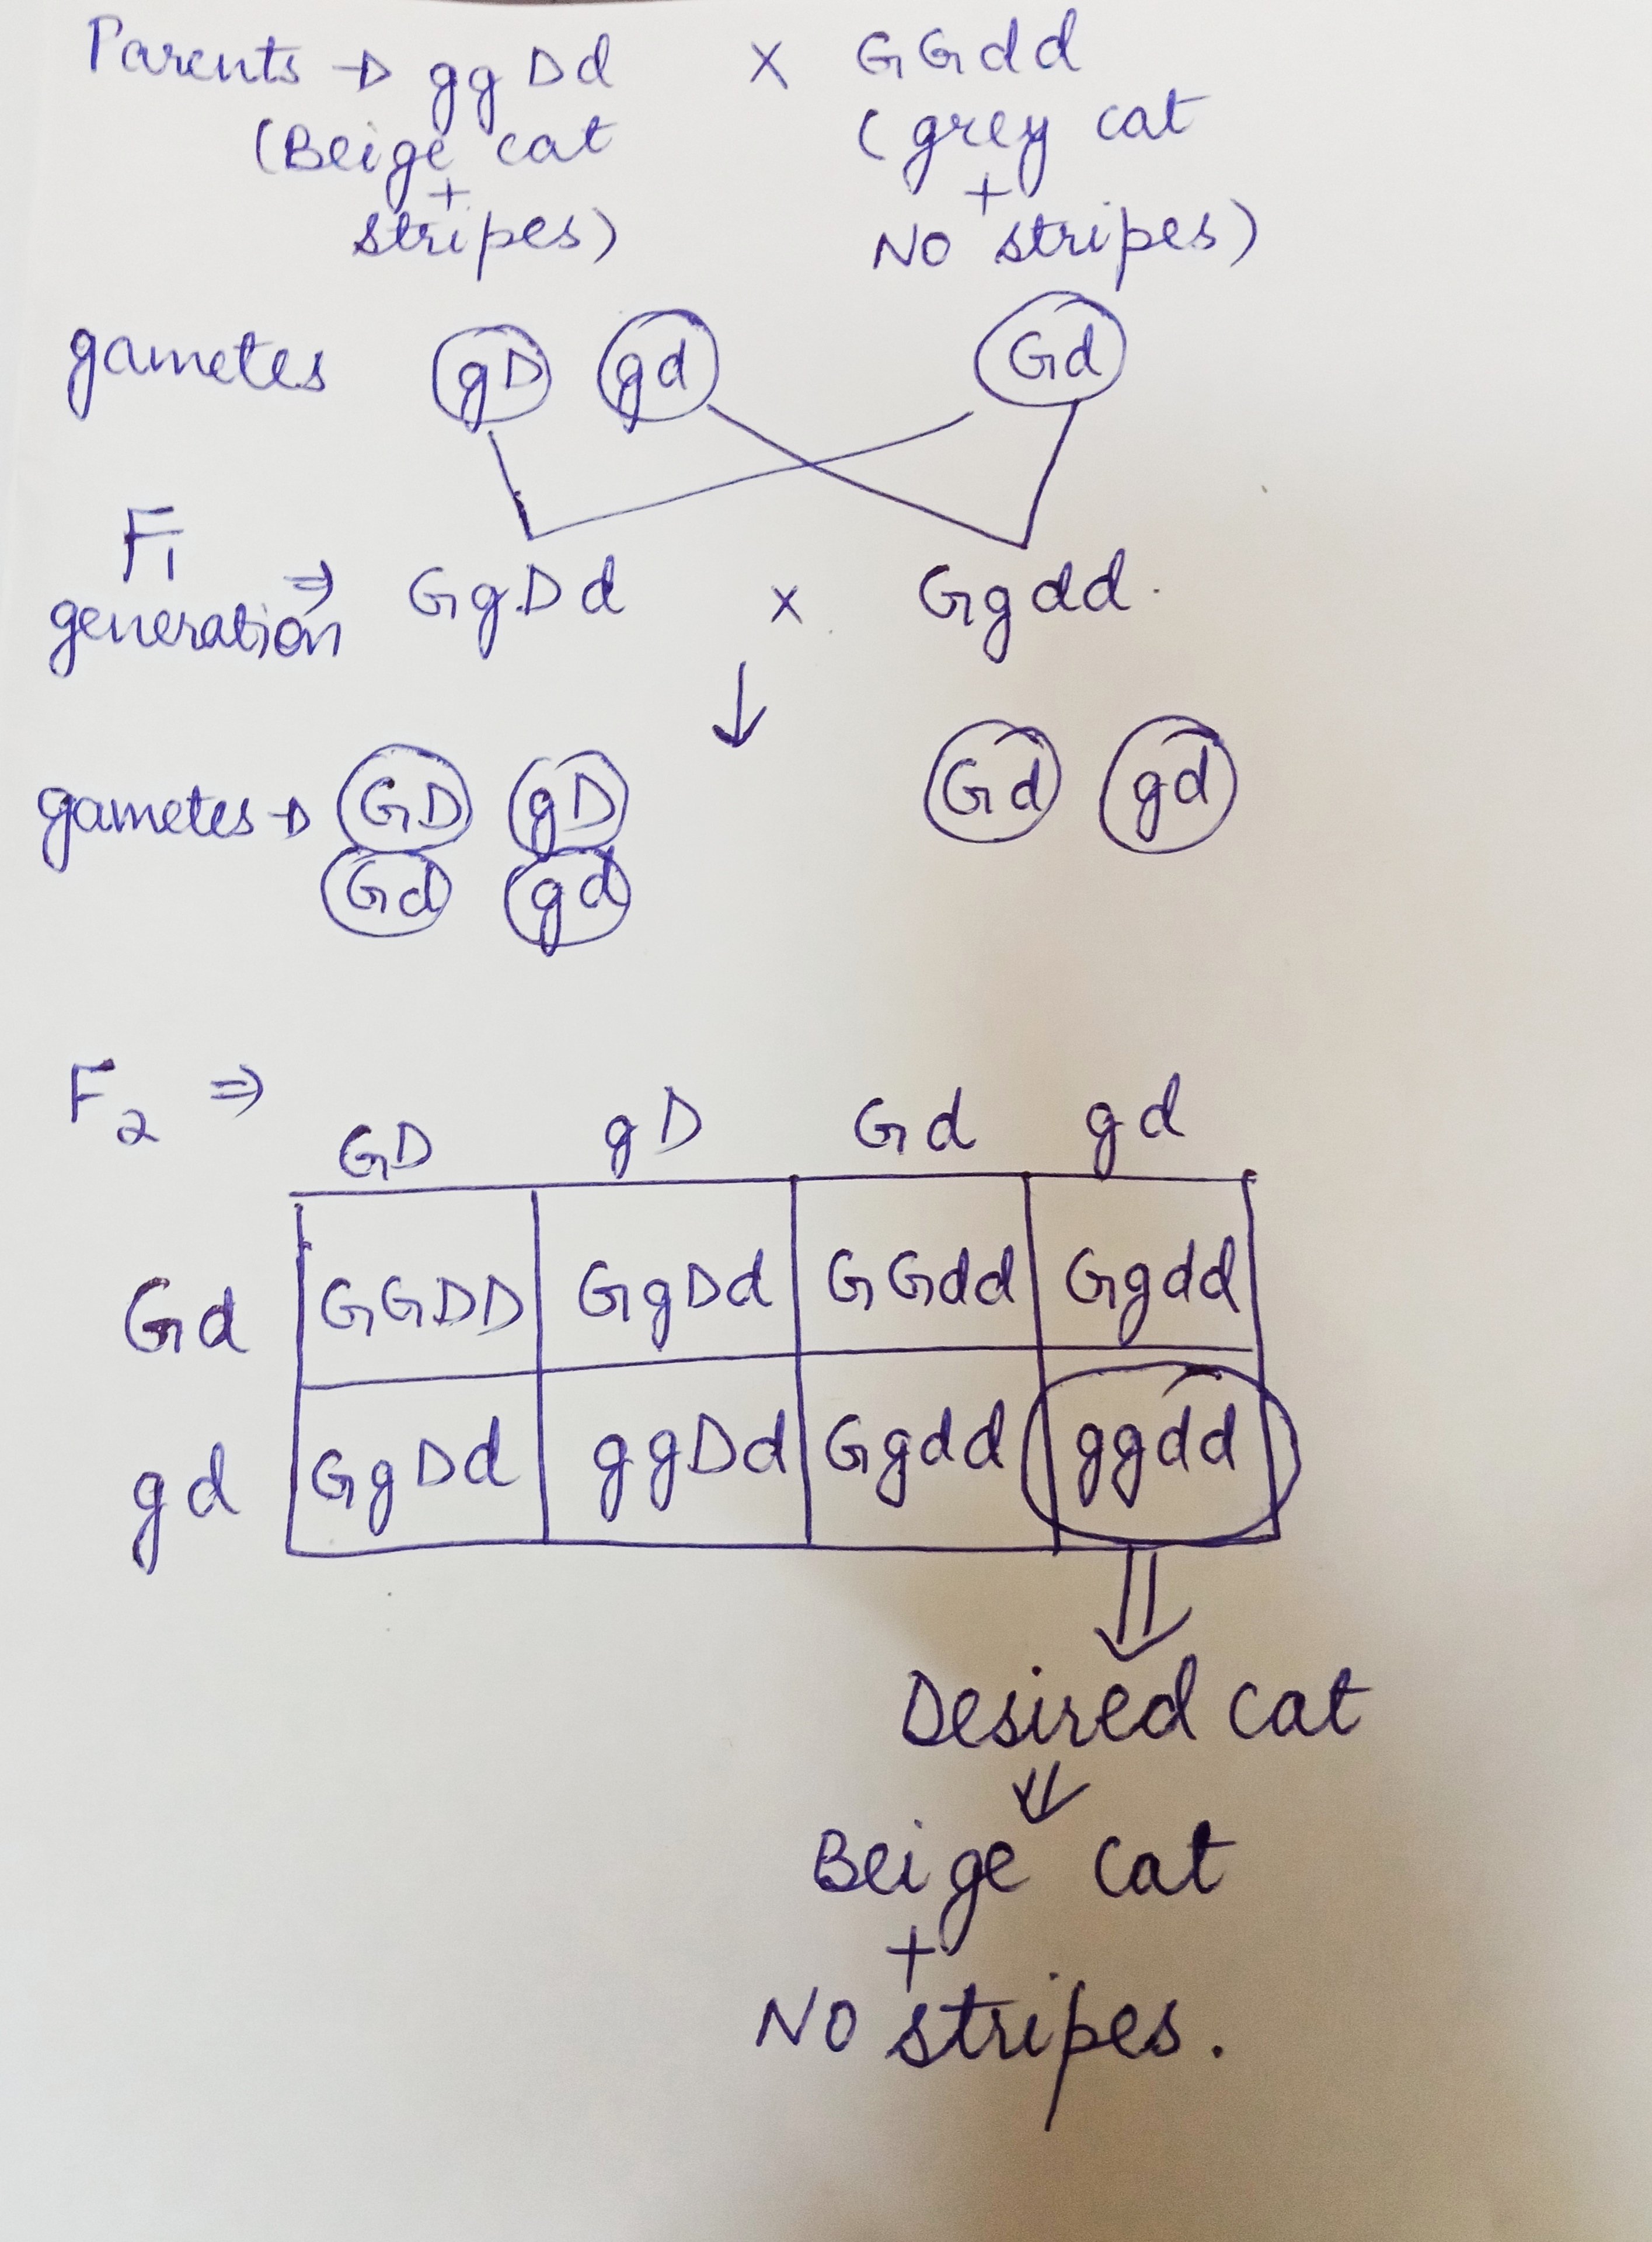 Parents → ggDd × GGdd
(Beige cat (grey cat
+ +
stripes) NO stripes)
gametes gD gd Gd
F1
generation ⇒ GgDd × Ggdd.
↓
gametes → GD gD Gd gd
Gd gd
F2 ⇒
GD gD Gd gd
Gd GGDD GgDd GGdd Ggdd
gd GgDd ggDd Ggdd ggdd
Desired cat
Beige cat
+
NO stripes.